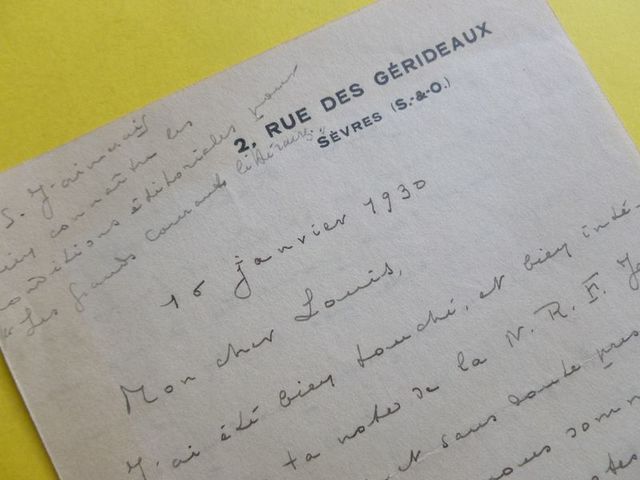 2, RUE DES GÉRIDEAUX
SÈVRES (S.-&-O.)
S. J'aimerais
bien connaître les
conditions éditoriales pour
"Les grands courants littéraires".
16 janvier 1930
Mon cher Louis,
J'ai été bien touché, et bien indé-
ta note de la N. R. F.
et sans doute
nous somm